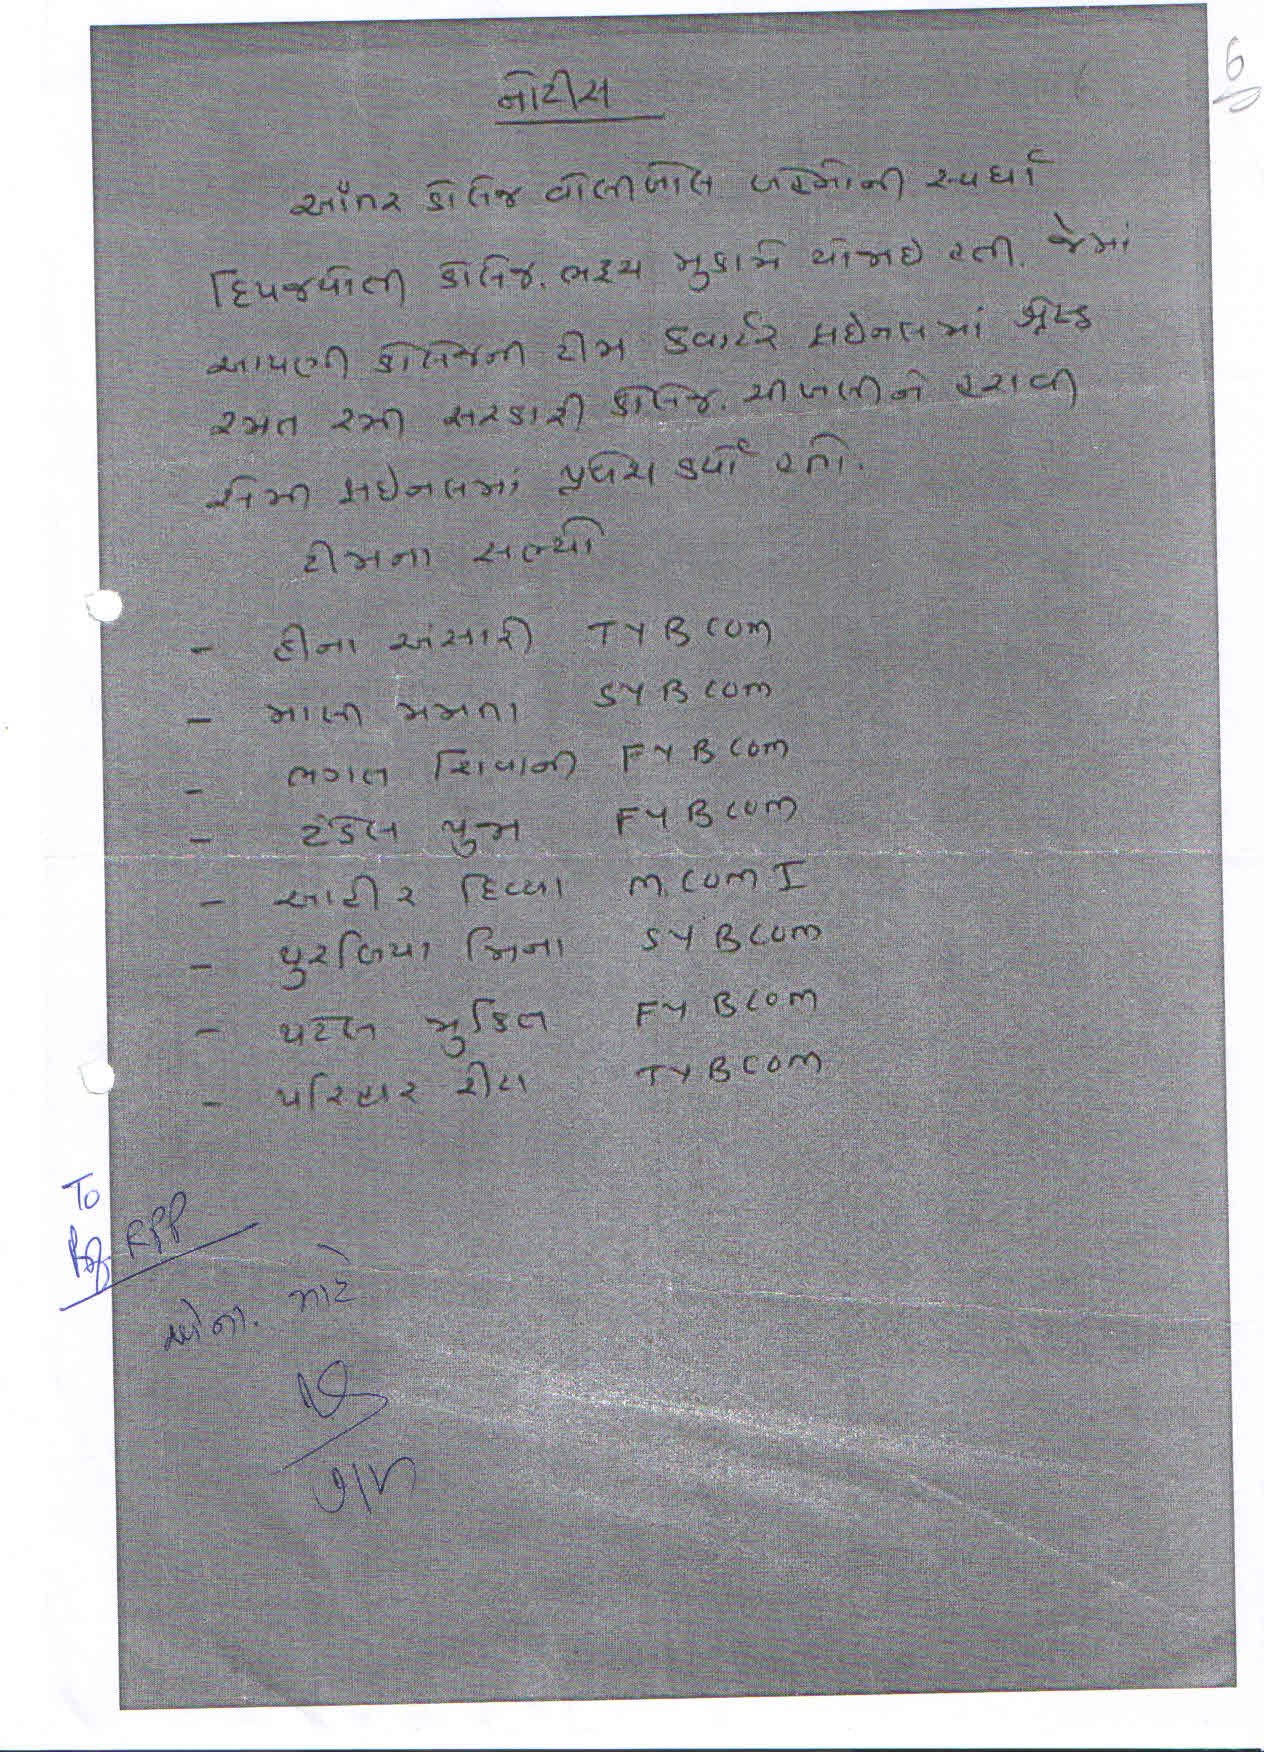 6
નોટીસ
આંતર કોલેજ વોલીબોલ બહેનોની સ્પર્ધા
કોલેજ, ભરૂચ મુકામે યોજાઇ હતી. જેમાં
આપણી કોલેજની ટીમ કવાર્ટર ફાઇનલમાં
રમત રમી સરકારી કોલેજ, ચીખલીને હરાવી
સેમી ફાઇનલમાં પ્રવેશ કર્યો હતો.
ટીમના સભ્યો
- હીના અંસારી TYBCOM
- માલી મમતા SYBCOM
- ભગત શિવાની FYBCOM
- ટંડેલ પુમ FYBCOM
- આહીર દિવ્યા M.COM I
- પુરબિયા મિના SYBCOM
- પટેલ FYBCOM
- પરિહાર રીટા TYBCOM
To
RPP
માટે